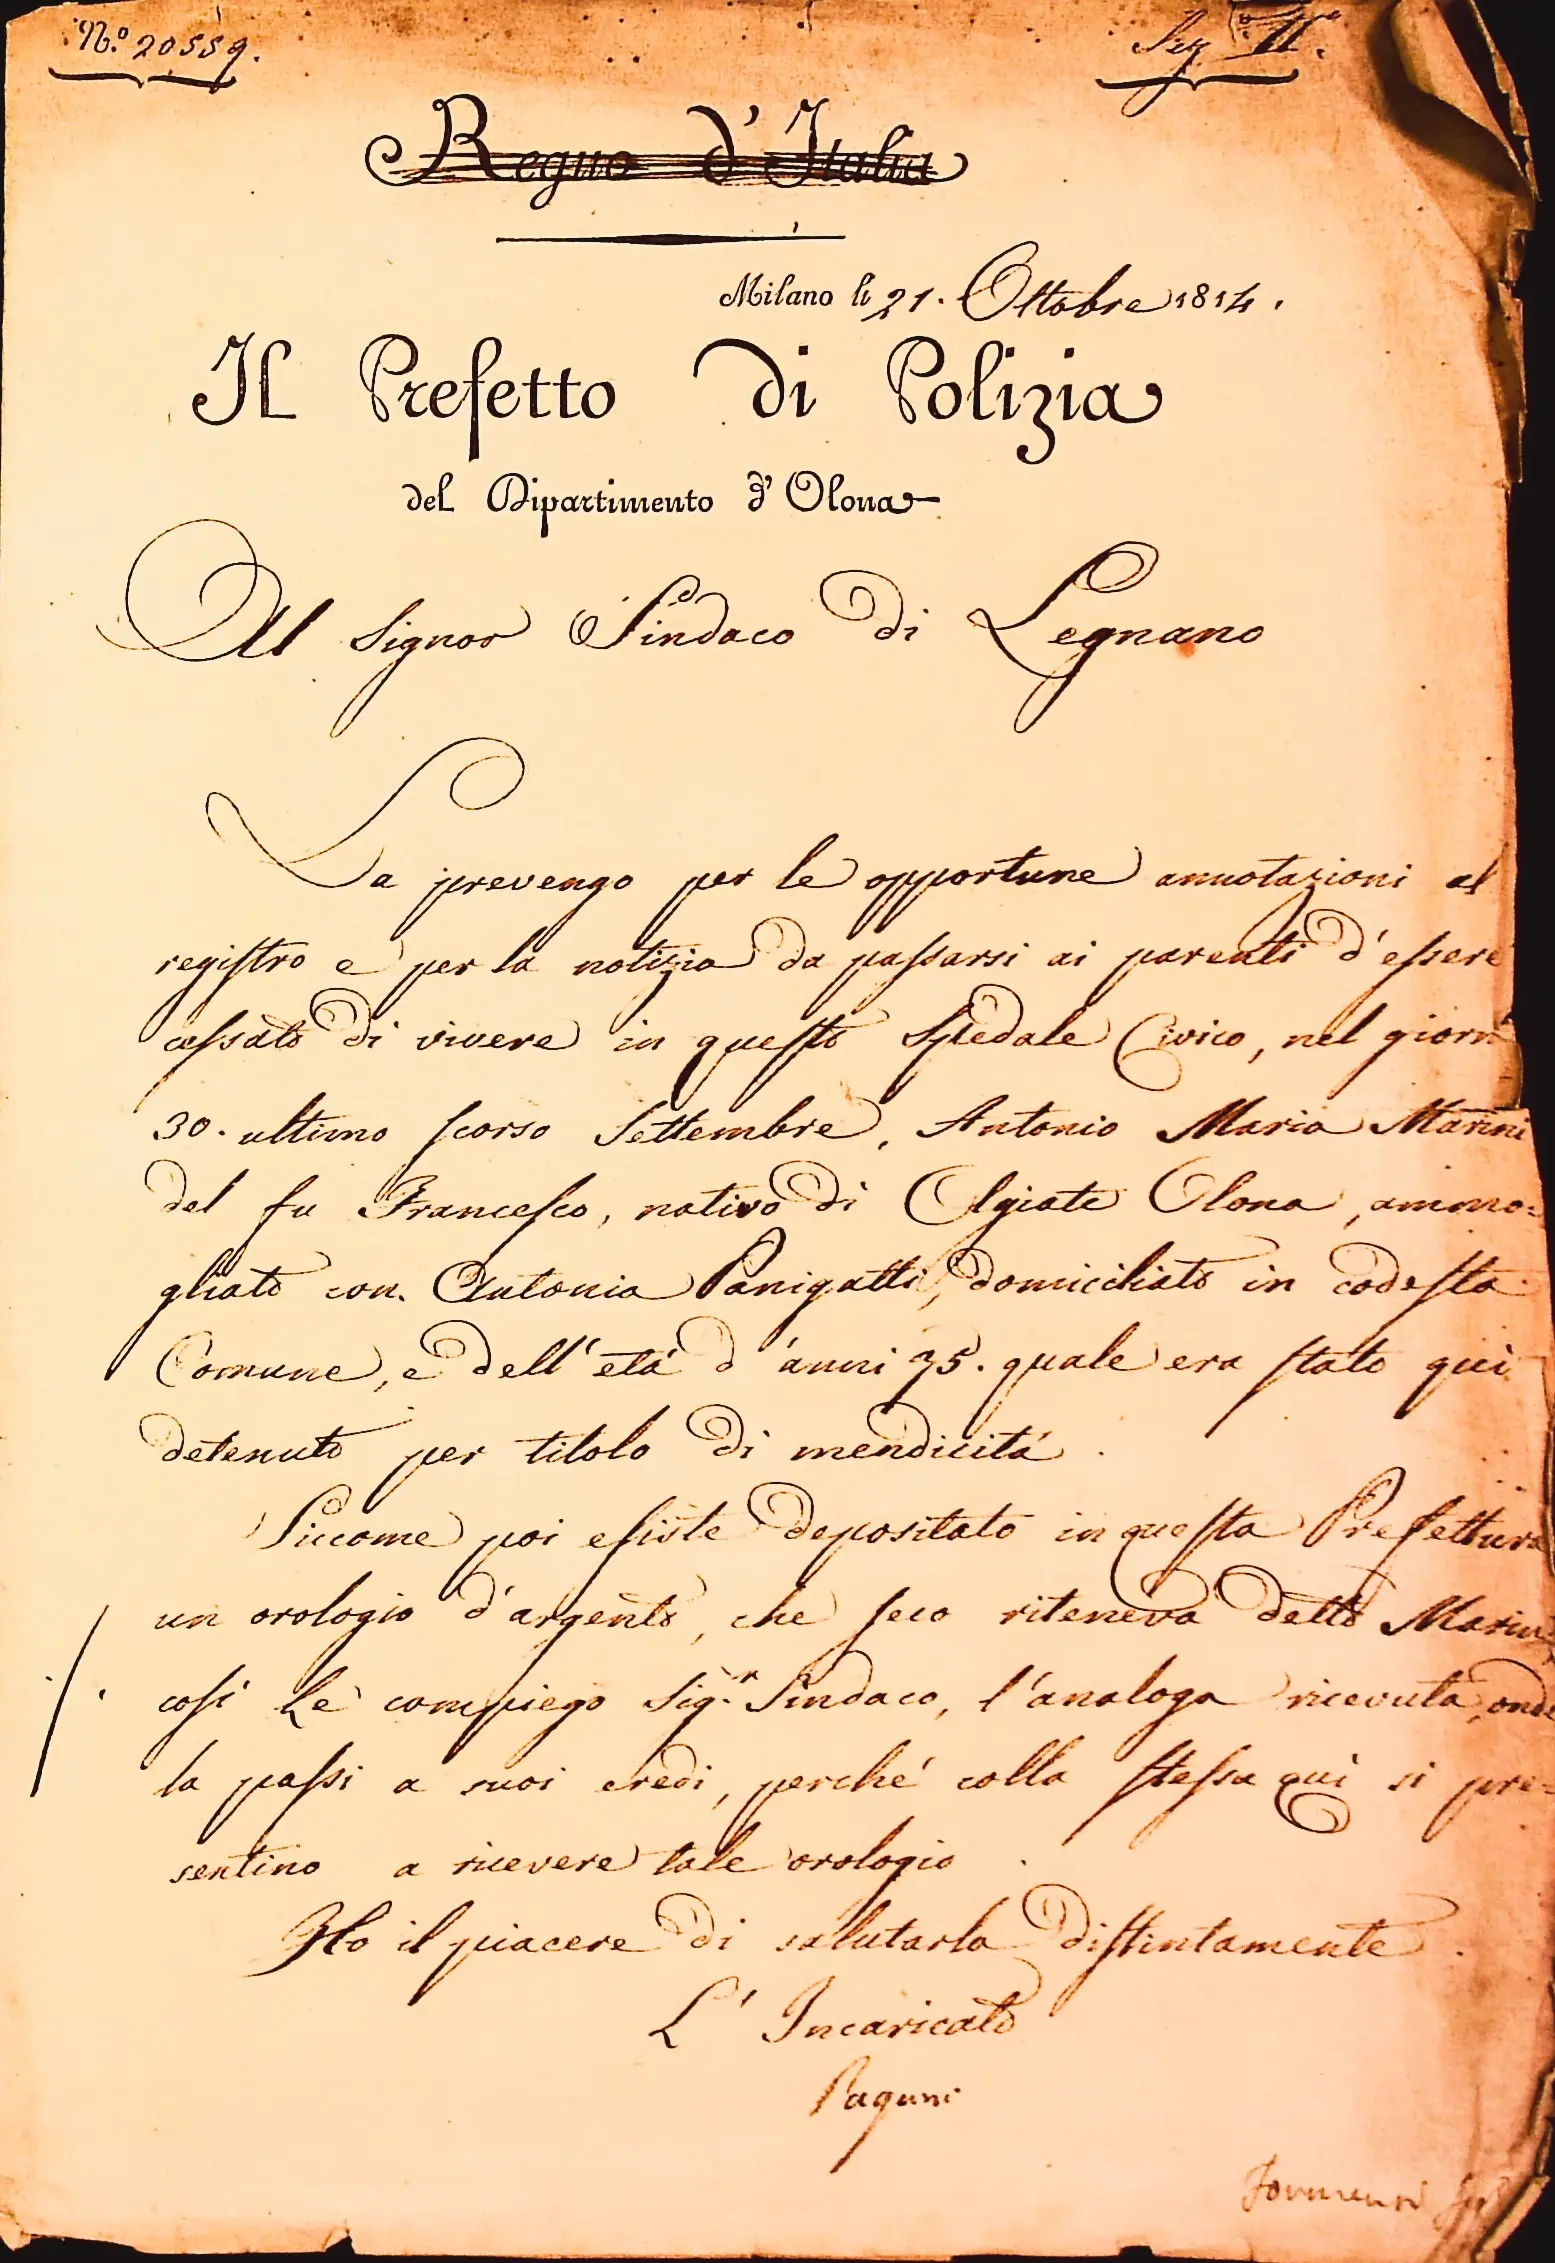 N.º 20559.
Sez. II.ª
Regno d'Italia
Milano li 21. Ottobre 1814.
Il Prefetto di Polizia
del Dipartimento d'Olona
Al Signor Sindaco di Legnano
La prevengo per le opportune annotazioni al
regiſtro e per la notizia da paſsarsi ai parenti d'eſsere
ceſsato di vivere in queſto Spedale Civico, nel giorn
30. ultimo ſcorso Settembre, Antonio Maria Marini
del fu Franceſco, nativo di Olgiate Olona, ammo=
gliato con Antonia Panigatti, domiciliato in codeſta
Comune, e dell'etá d'anni 75. quale era ſtato quì
detenuto per titolo di mendicitá.
Siccome poi eſiste depositato in queſta Prefettura
un orologio d'argento, che ſeco riteneva detto Marini
coſì Le compiego Sig.r Sindaco, l'analoga ricevuta, onde
la paſsi a suoi eredi, perché colla ſteſsa quì si pre=
sentino a ricevere tale orologio.
Ho il piacere di salutarla diſtintamente.
L'Incaricato
Pagani